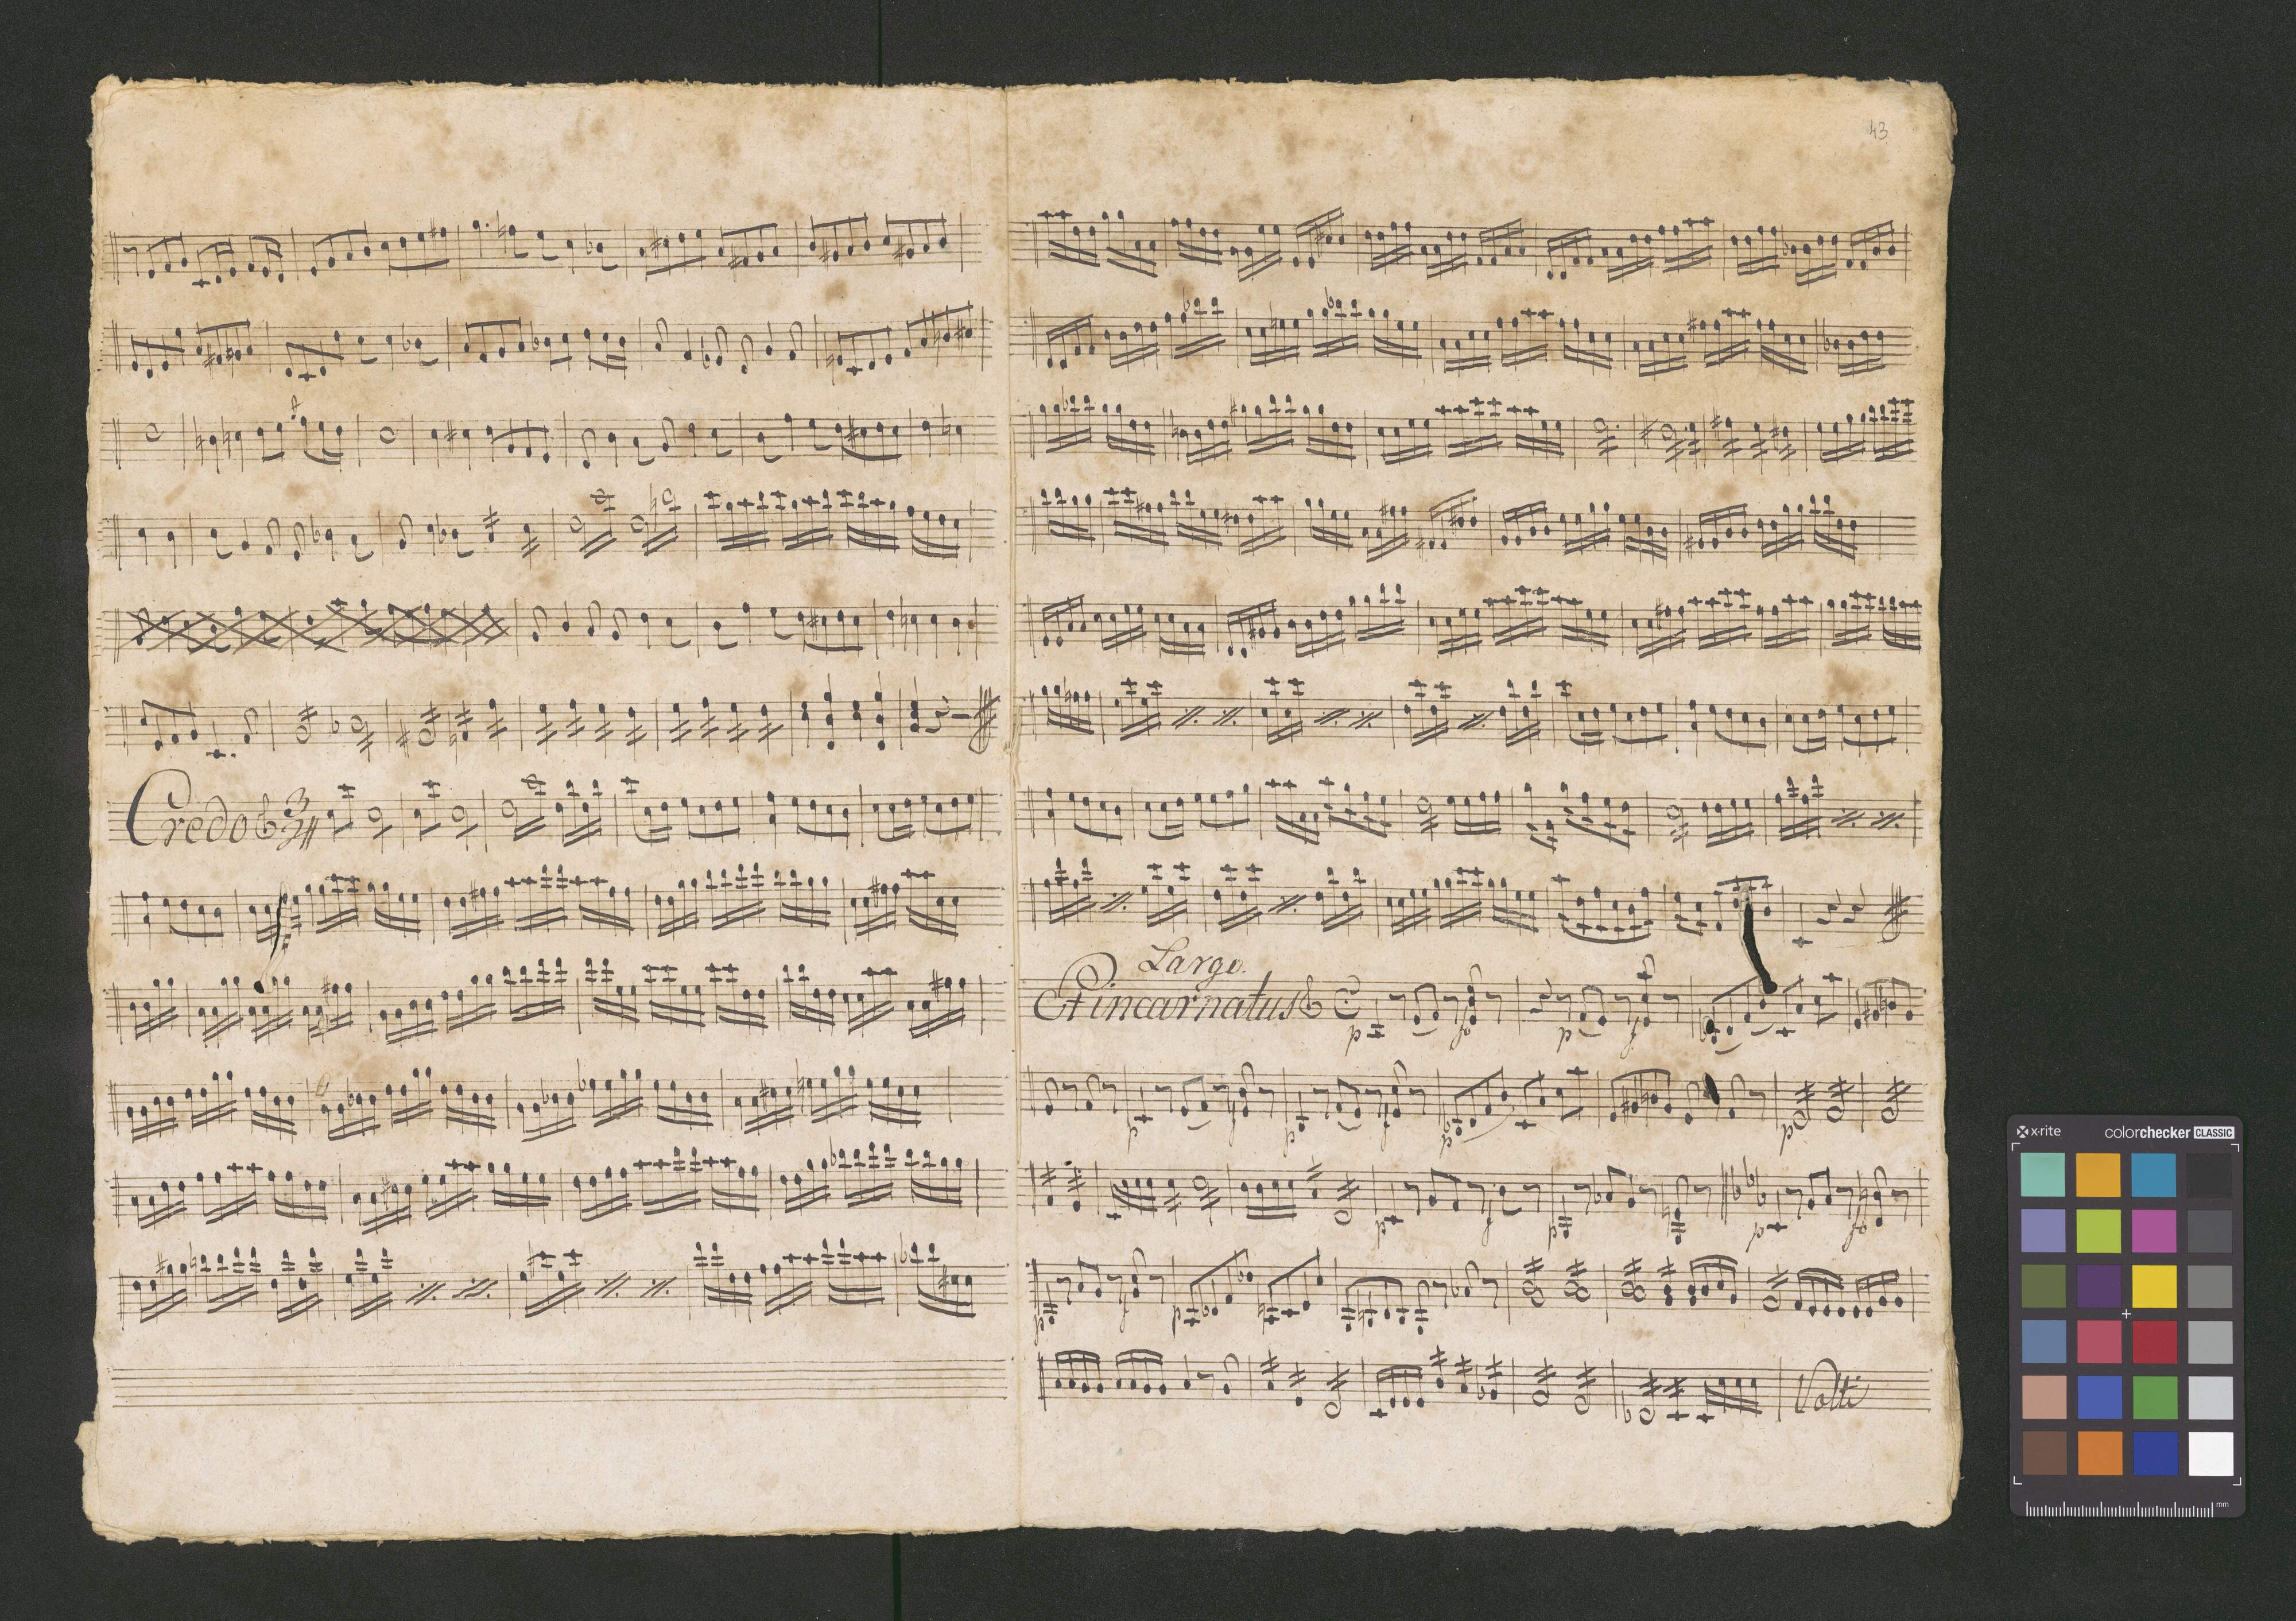 Credo 3/4
43
Largo.
Et incarnatus C
p f p f
p f p f p p
p f p p f
p f p
Volti
x·rite colorchecker CLASSIC
mm